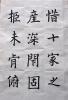 惜十家之
產深閉固
拒未肯俯